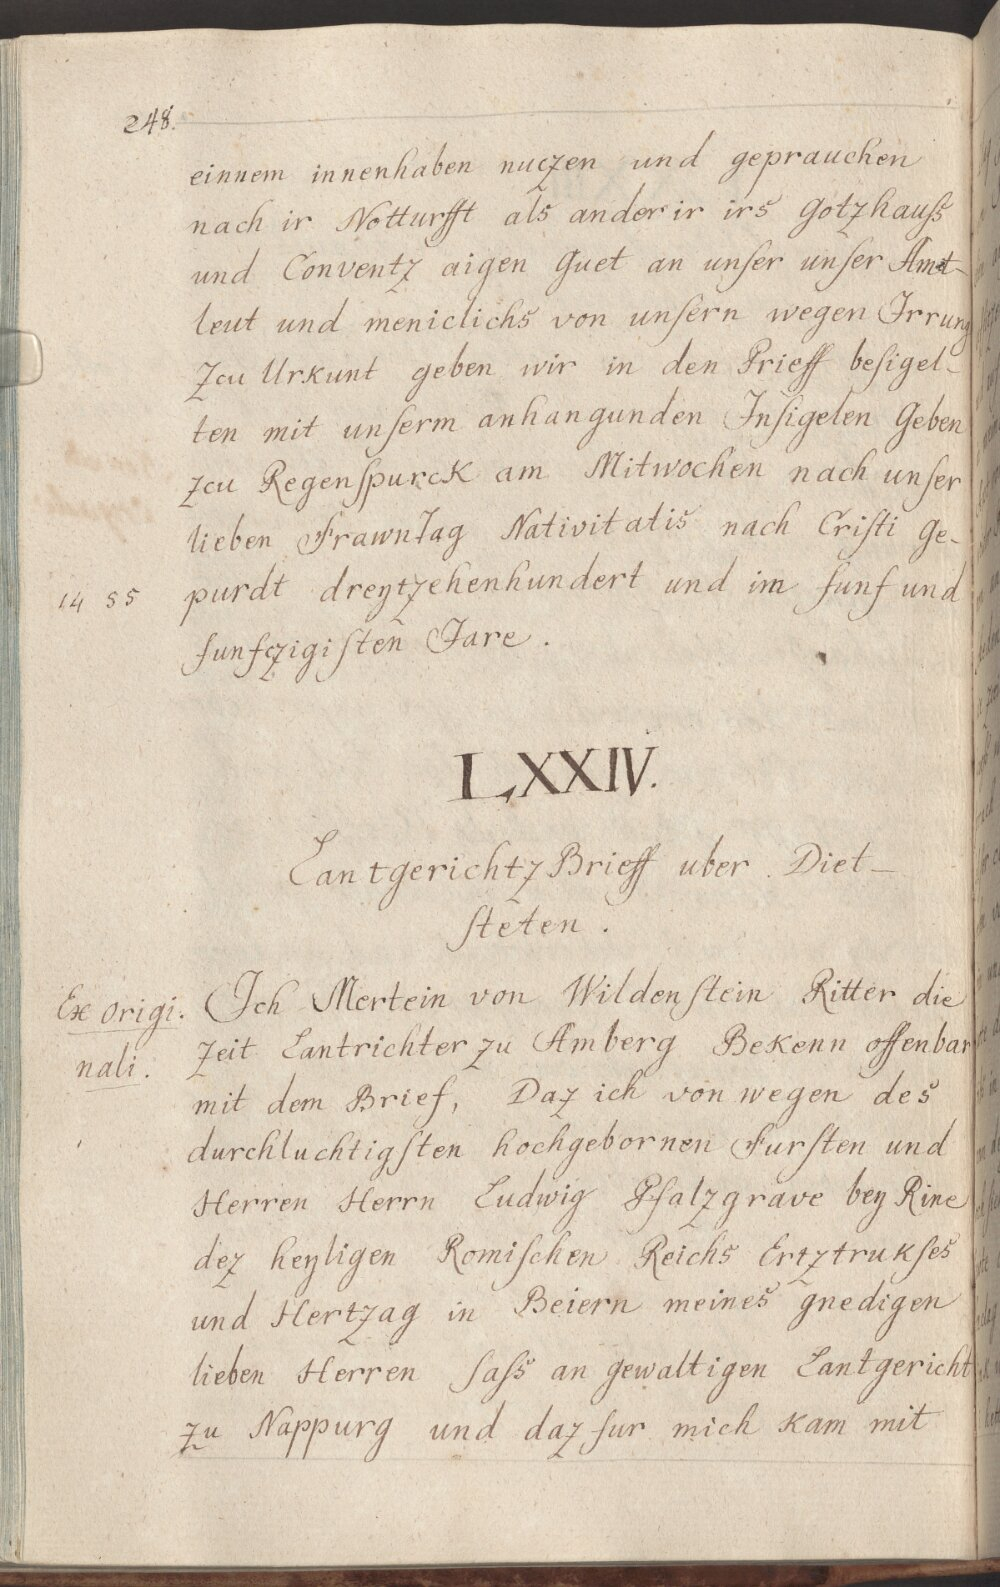 248.
einnem innenhaben nuczen und geprauchen
nach ir Notturfft als ander ir irs Gotzhauß
und Conventz aigen Guet an unser unser Amt-
leut und meniclichs von unsern wegen Irrung
Zcu Urkunt geben wir in den Prieff besigel-
ten mit unserm anhangunden Insigelen Geben
zcu Regenspurck am Mitwochen nach unser
lieben Frawn Tag Nativitatis nach Cristi Ge-
14 55 purdt dreytzehenhundert und im funf und
funfczigisten Jare.
LXXIV.
Lantgerichtz Brieff uber Diet-
steten.
Ex origi. Ich Mertein von Wildenstein Ritter die
nali. Zeit Lantrichter zu Amberg Bekenn offenbar
mit dem Brief, Daz ich von wegen des
durchluchtigsten hochgebornen Fursten und
Herren Herrn Ludwig Pfalzgrave bey Rine
dez heyligen Romischen Reichs Ertztrukses
und Hertzag in Beiern meines gnedigen
lieben Herren saß an gewaltigen Lantgericht
zu Nappurg und daz fur mich kam mit